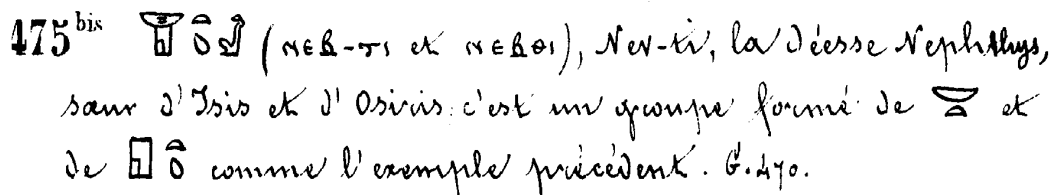 475 bis 𓉠𓏏𓆇 (ⲛⲉⲃ-ⲧⲓ et ⲛⲉⲃⲑⲓ), Nev-ti, la Déesse Nephthys,
sœur d'Isis et d'Osiris: c'est un groupe formé de 𓎟 et
de 𓉗 comme l'exemple précédent. G. 470.